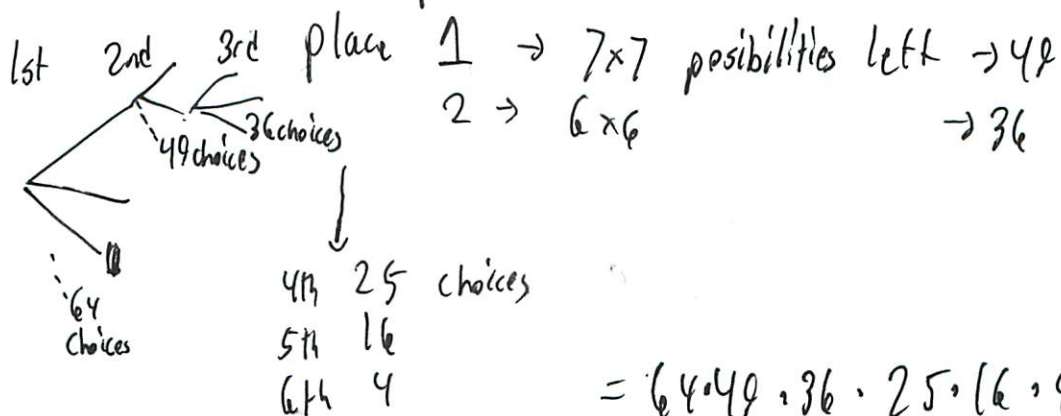 1st 2nd 3rd place 1 → 7×7 posibilities left → 49
2 → 6×6 → 36
36 choices
49 choices
64
choices
4th 25 choices
5th 16
6th 4
= 64·49·36·25·16·